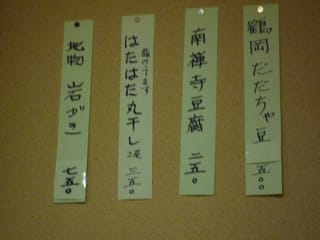 鶴岡 だだちゃ豆 五〇〇
南禅寺豆腐 二五〇
脂のってます
はたはた丸干し 2尾 三五〇
地物 岩がき 七五〇